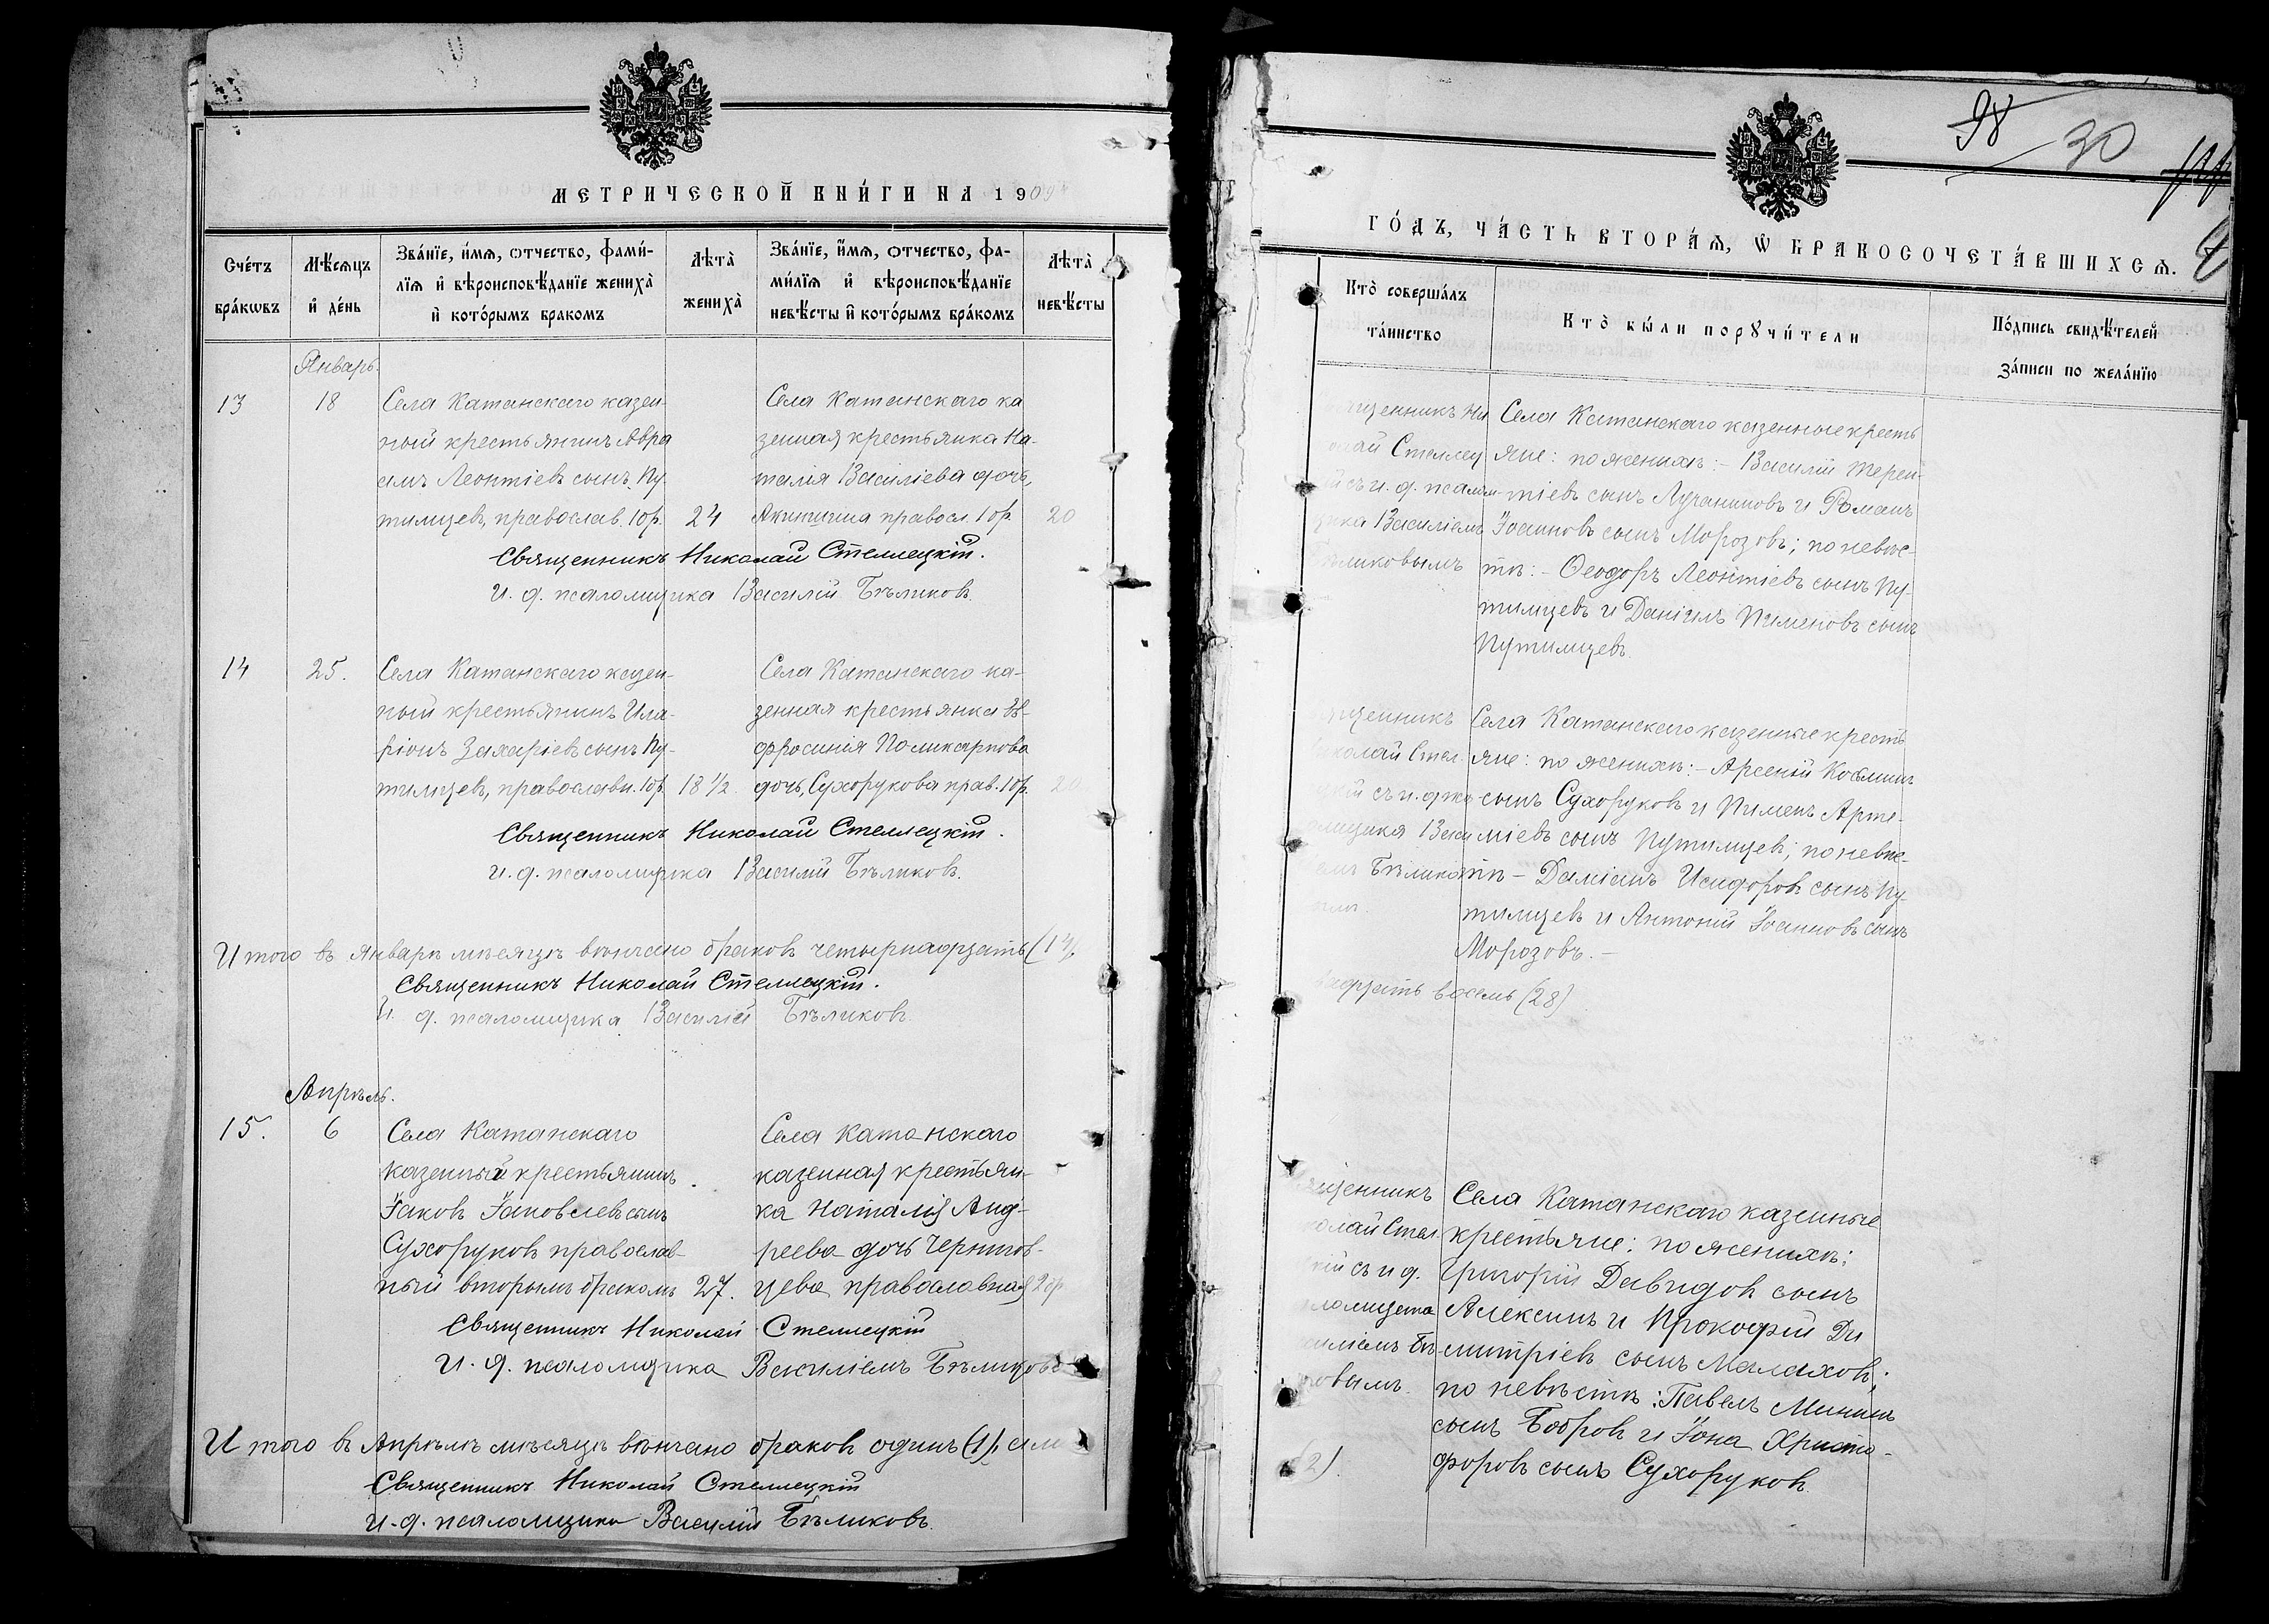 МЕТРИЧЕСКОЙ КНИГИ НА 1909
Счетъ браковъ
Мѣсяцъ и день
Званїе, имя, отчество, фами-
лїя и вѣроисповѣданїе жениха
и которымъ бракомъ
Лѣта жениха
Званїе, имя, отчество, фа-
милїя и вѣроисповѣданїе
невѣсты и которымъ бракомъ
Лѣта невѣсты
Январь.
13
18
Села Катанскаго казен-
ный крестьянинъ Авра
амъ Леонтіевъ сынъ Пу
тимцевъ, православ. 1 бр.
24
Села Катанскаго ка
зенная крестьянка На-
талія Василіева дочь,
Акинина правосл. 1 бр.
20
Священникъ Николай Стеллецкій.
И. д. псаломщика Василій Бѣликовъ.
14
25.
Села Катанскаго казен-
ный крестьянинъ Ила-
ріонъ Захаріевъ сынъ Пу-
тимцевъ, православн. 1 бр.
18 1/2
Села Катанскаго ка-
зенная крестьянка Ев-
фросинія Поликарпова
дочь, Сухорукова прав. 1 бр.
20
Священникъ Николай Стеллецкій.
и. д. псаломщика Василій Бѣликовъ.
Итого въ Январѣ мѣсяцѣ вѣнчано браковъ четырнадцать (14)
Священникъ Николай Стеллецкій.
И. д. псаломщика Василій Бѣликовъ
Апрѣль.
15.
6
Села Катанскаго
казенный крестьянинъ
Іаковъ Іаковлевъ сынъ
Сухоруковъ православ-
ный вторымъ бракомъ
27.
Села Катанскаго
казенная крестьян-
ка Наталія Анд-
реева дочь Чернигов-
цева православная 2 бр
Священникъ Николай Стеллецкій
И. д. псаломщика Василіемъ Бѣликовъ
Итого въ Апрѣлѣ мѣсяцѣ вѣнчано браковъ одинъ (1)
Священникъ Николай Стеллецкій
и. д. псаломщика Василій Бѣликовъ.
98
30
ГОДЪ, ЧАСТЬ ВТОРАЯ, Ѡ БРАКОСОЧЕТАВШИХСЯ.
Кто совершалъ
таинство
Кто были поручители
Подпись свидѣтелей
записи по желанїю
щенникъ Ни
лай Стеллец
й съ и. д. псалом-
щика Василіемъ
ликовымъ
Села Катанскаго казенные кресть
яне: по женихѣ: - Василій Терен-
тіевъ сынъ Лучаниновъ и Романъ
Іоанновъ сынъ Морозовъ; по невѣс-
тѣ: - Ѳеодоръ Леонтіевъ сынъ Пу-
тимцевъ и Даніилъ Пименовъ сынъ
Путимцевъ.
щенникъ
колай Стел.
й съ и. д. пса
омщика Васи
Бѣлико
Села Катанскаго казенные кресть
яне: по женихѣ: - Арсеній Косминъ
сынъ Сухоруковъ и Пименъ Арте-
міевъ сынъ Путимцевъ; по невѣс-
тѣ - Даміанъ Исидоровъ сынъ Пу-
тимцевъ и Антоній Іоанновъ сынъ
Морозовъ. -
адцать восемь (28)
щенникъ
олай Стел.
кій съ и д.
аломщика
силіемъ Бѣ
ковымъ.
Села Катанскаго казенные
крестьяне: по женихѣ:
Григорій Давидовъ сынъ
Алексинъ и Прокофій Ди
митріевъ сынъ Малаховъ;
по невѣстѣ: Павелъ Мининъ
сынъ Бобровъ и Іона Христо-
форовъ сынъ Сухоруковъ.
(2).